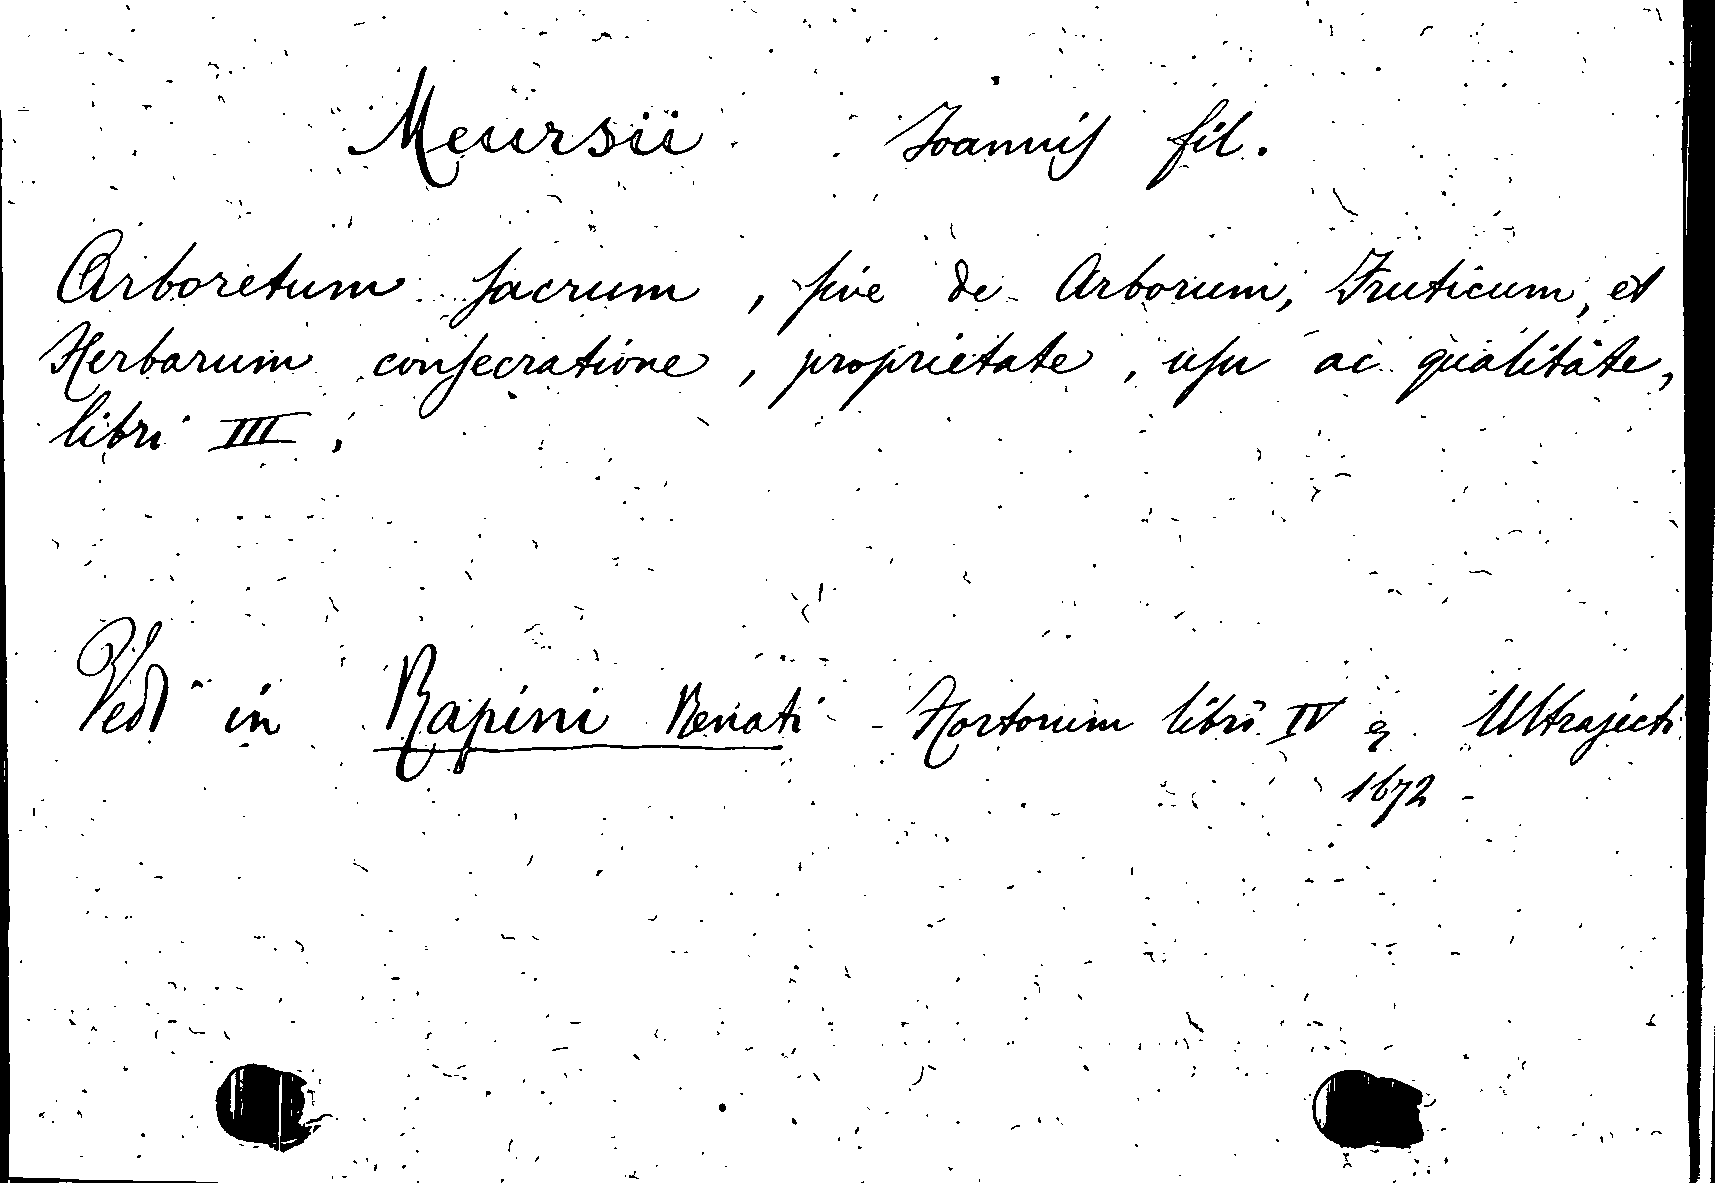 Meursii Ioannis fil.
Arboretum sacrum, sive de Arborum, Fruticum, et
Herbarum consecratione, proprietate, usu ac qualitate,
libri III.
Vedi in Rapini Renati Hortorum libri IV & Ultrajecti
1672